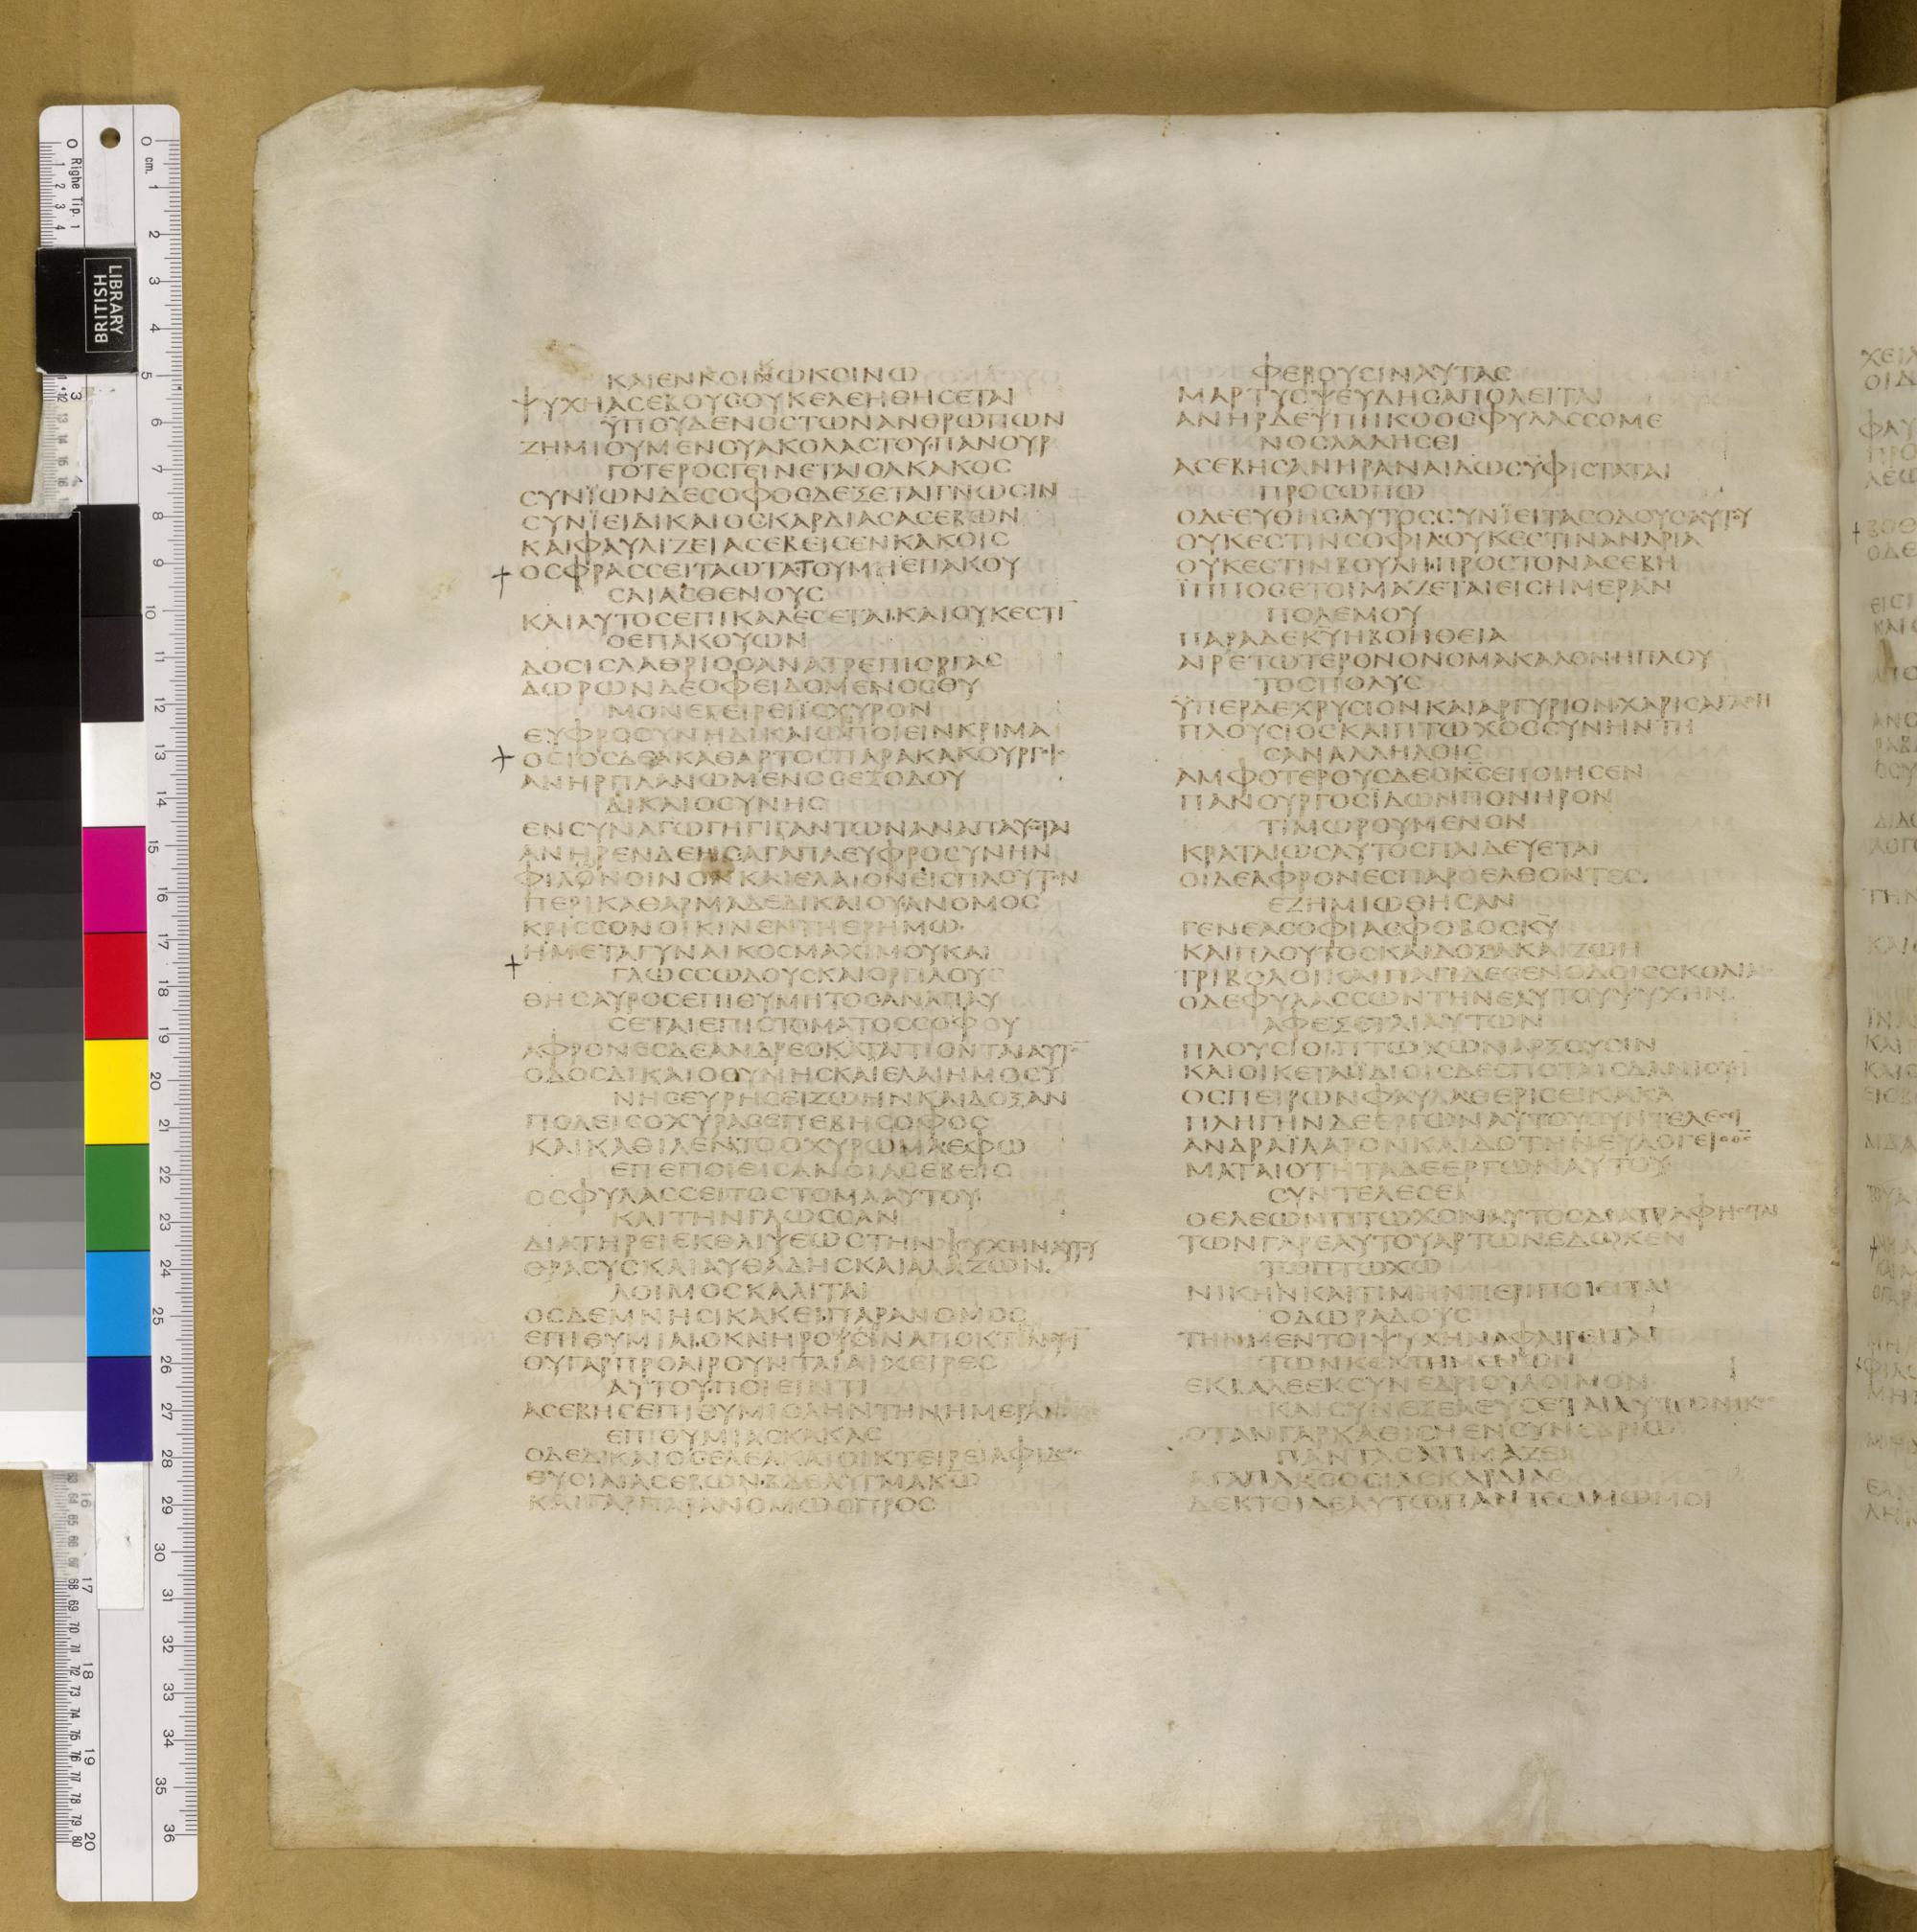 ΚΑΙΕΝΚΟΙΝΩΚΟΙΝΩ
ΨΥΧΗΑΣΕΒΟΥΣΟΥΚΕΛΕΗΘΗΣΕΤΑΙ
ΫΠΟΥΔΕΝΟΣΤΩΝΑΝΘΡΩΠΩΝ
ΖΗΜΙΟΥΜΕΝΟΥΑΚΟΛΑΣΤΟΥΠΑΝΟΥΡ
ΓΟΤΕΡΟΣΓΕΙΝΕΤΑΙΟΑΚΑΚΟΣ
ΣΥΝΪΩΝΔΕΣΟΦΟΣΔΕΞΕΤΑΙΓΝΩΣΙΝ
ΣΥΝΪΕΙΔΙΚΑΙΟΣΚΑΡΔΙΑΣΑΣΕΒΩΝ
ΚΑΙΦΑΥΛΙΖΕΙΑΣΕΒΕΙΣΕΝΚΑΚΟΙΣ
ΟΣΦΡΑΣΣΕΙΤΑΩΤΑΤΟΥΜΗΕΠΑΚΟΥ
ΣΑΙΑΣΘΕΝΟΥΣ
ΚΑΙΑΥΤΟΣΕΠΙΚΑΛΕΣΕΤΑΙ·ΚΑΙΟΥΚΕΣΤΙ̅
ΟΕΠΑΚΟΥΩΝ
ΔΟΣΙΣΛΑΘΡΙΟΣΑΝΑΤΡΕΠΙΟΡΓΑΣ
ΔΩΡΩΝΔΕΟΦΕΙΔΟΜΕΝΟΣΘΥ
ΜΟΝΕΓΕΙΡΕΙΪΣΧΥΡΟΝ
ΕΥΦΡΟΣΥΝΗΔΙΚΑΙΩΠΟΙΕΙΝΚΡΙΜΑ
ΟΣΙΟΣΔΕΑΚΑΘΑΡΤΟΣΠΑΡΑΚΑΚΟΥΡΓ
ΑΝΗΡΠΛΑΝΩΜΕΝΟΣΕΞΟΔΟΥ
ΔΙΚΑΙΟΣΥΝΗΣ
ΕΝΣΥΝΑΓΩΓΗΓΙΓΑΝΤΩΝΑΝΑΠΑΥΣΕΤΑΙ
ΑΝΗΡΕΝΔΕΗΣΑΓΑΠΑΕΥΦΡΟΣΥΝΗΝ
ΦΙΛΩΝΟΙΝΟΝΚΑΙΕΛΑΙΟΝΕΙΣΠΛΟΥΤΟΝ
ΠΕΡΙΚΑΘΑΡΜΑΔΕΔΙΚΑΙΟΥΑΝΟΜΟΣ
ΚΡΙΣΣΟΝΟΙΚΙΝΕΝΤΗΕΡΗΜΩ·
ΗΜΕΤΑΓΥΝΑΙΚΟΣΜΑΧΙΜΟΥΚΑΙ
ΓΛΩΣΣΩΔΟΥΣΚΑΙΟΡΓΙΛΟΥ
ΘΗΣΑΥΡΟΣΕΠΙΘΥΜΗΤΟΣΑΝΑΠΑΥ
ΣΕΤΑΙΕΠΙΣΤΟΜΑΤΟΣΣΟΦΟΥ
ΑΦΡΟΝΕΣΔΕΑΝΔΡΕΣΚΑΤΑΠΙΟΝΤΑΙΑΥΤ
ΟΔΟΣΔΙΚΑΙΟΣΥΝΗΣΚΑΙΕΛΑΙΗΜΟΣΥ
ΝΗΣΕΥΡΗΣΕΙΖΩΗΝΚΑΙΔΟΞΑΝ
ΠΟΛΕΙΣΟΧΥΡΑΣΕΠΕΒΗΣΟΦΟΣ
ΚΑΙΚΑΘΙΛΕΝΤΟΟΧΥΡΩΜΑΕΦΩ
ΕΠΕΠΟΙΘΙΣΑΝΟΙΑΣΕΒΕΙΣ
ΟΣΦΥΛΑΣΣΕΙΤΟΣΤΟΜΑΑΥΤΟΥ·
ΚΑΙΤΗΝΓΛΩΣΣΑΝ
ΔΙΑΤΗΡΕΙΕΚΘΛΙΨΕΩΣΤΗΝΨΥΧΗΝΑΥΤΟΥ
ΘΡΑΣΥΣΚΑΙΑΥΘΑΔΗΣΚΑΙΑΛΑΖΩΝ.
ΛΟΙΜΟΣΚΑΛΙΤΑΙ
ΟΣΔΕΜΝΗΣΙΚΑΚΕΙΠΑΡΑΝΟΜΟΣ
ΕΠΙΘΥΜΙΑΙΟΚΝΗΡΟΥΣΙΝΑΠΟΚΤ
ΟΥΓΑΡΠΡΟΑΙΡΟΥΝΤΑΙΑΙΧΕΙΡΕΣ
ΑΥΤΟΥΠΟΙΕΙΝΤΙ
ΑΣΕΒΗΣΕΠΙΘΥΜΙΟΛΗΝΤΗΝΗΜΕΡΑΝ
ΕΠΙΘΥΜΙΑΣΚΑΚΑΣ
ΟΔΕΔΙΚΑΙΟΣΕΛΕΑΚΑΙΟΙΚΤΕΙΡΕΙΑΦΙΔ
ΘΥΣΙΑΙΑΣΕΒΩΝΒΔΕΛΥΓΜΑΚΩ̅
ΚΑΙΓΑΡΠΑΡΑΝΟΜΩΣΠΡΟΣ
ΦΕΡΟΥΣΙΝΑΥΤΑΣ
ΜΑΡΤΥΣΨΕΥΔΗΣΑΠΟΛΕΙΤΑΙ
ΑΝΗΡΔΕΥΠΗΚΟΟΣΦΥΛΑΣΣΟΜΕ
ΝΟΣΛΑΛΗΣΕΙ
ΑΣΕΒΗΣΑΝΗΡΑΝΑΙΔΩΣΥΦΙΣΤΑΤΑΙ
ΠΡΟΣΩΠΩ
ΟΔΕΕΥΘΗΣΑΥΤΟΣΣΥΝΪΕΙΤΑΣΟΔΟΥΣΑΥΤΟΥ
ΟΥΚΕΣΤΙΝΣΟΦΙΑ·ΟΥΚΕΣΤΙΝΑΝΔΡΙΑ
ΟΥΚΕΣΤΙΝΒΟΥΛΗ·ΠΡΟΣΤΟΝΑΣΕΒΗ
ΪΠΠΟΣΕΤΟΙΜΑΖΕΤΑΙΕΙΣΗΜΕΡΑΝ
ΠΟΛΕΜΟΥ
ΠΑΡΑΔΕΚΥ̅ΗΒΟΗΘΕΙΑ
ΑΙΡΕΤΩΤΕΡΟΝΟΝΟΜΑΚΑΛΟΝΗΠΛΟΥ
ΤΟΣΠΟΛΥΣ
ΫΠΕΡΔΕΧΡΥΣΙΟΝΚΑΙΑΡΓΥΡΙΟΝΧΑΡΙΣΑΓΑΘΗ
ΠΛΟΥΣΙΟΣΚΑΙΠΤΩΧΟΣΣΥΝΗΝΤΗ
ΣΑΝΑΛΛΗΛΟΙΣ
ΑΜΦΟΤΕΡΟΥΣΔΕΟΚΣΕΠΟΙΗΣΕΝ
ΠΑΝΟΥΡΓΟΣΪΔΩΝΠΟΝΗΡΟΝ
ΤΙΜΩΡΟΥΜΕΝΟΝ
ΚΡΑΤΑΙΩΣΑΥΤΟΣΠΑΙΔΕΥΕΤΑΙ
ΟΙΔΕΑΦΡΟΝΕΣΠΑΡΕΛΘΟΝΤΕΣ.
ΕΖΗΜΙΩΘΗΣΑΝ
ΓΕΝΕΑΣΟΦΙΑΣΦΟΒΟΣΚΥ̅
ΚΑΙΠΛΟΥΤΟΣΚΑΙΔΟΞΑΚΑΙΖΩΗ
ΤΡΙΒΟΛΟΙΚΑΙΠΑΓΙΔΕΣΕΝΟΔΟΙΣΣΚΟΛΙΑ
ΟΔΕΦΥΛΑΣΣΩΝΤΗΝΕΑΥΤΟΥΨΥΧΗΝ.
ΑΦΕΞΕΤΑΙΑΥΤΩΝ
ΠΛΟΥΣΙΟΙΠΤΩΧΩΝΑΡΞΟΥΣΙΝ
ΚΑΙΟΙΚΕΤΑΙΪΔΙΟΙΣΔΕΣΠΟΤΑΙΣΔΑΝΙΟΥΣΙ
ΟΣΠΕΙΡΩΝΦΑΥΛΑΘΕΡΙΣΕΙΚΑΚΑ
ΠΛΗΓΗΝΔΕΕΡΓΩΝΑΥΤΟΥΣΥΝΤΕΛΕΣΙ
ΑΝΔΡΑΪΛΑΡΟΝΚΑΙΔΟΤΗΝΕΥΛΟΓΕΙΟΘΣ
ΜΑΤΑΙΟΤΗΤΑΔΕΕΡΓΩΝΑΥΤΟΥ
ΣΥΝΤΕΛΕΣΕΙ
ΟΕΛΕΩΝΠΤΩΧΟΝΑΥΤΟΣΔΙΑΤΡΑΦΗΣΕΤΑΙ
ΤΩΝΓΑΡΕΑΥΤΟΥΑΡΤΩΝΕΔΩΚΕΝ
ΤΩΠΤΩΧΩ
ΝΙΚΗΝΚΑΙΤΙΜΗΝΠΕΡΙΠΟΙΕΙΤΑΙ
ΟΔΩΡΑΔΟΥΣ
ΤΗΝΜΕΝΤΟΙΨΥΧΗΝΑΦΑΙΡΕΙΤΑΙ
ΤΩΝΚΕΚΤΗΜΕΝΩΝ
ΕΚΒΑΛΕΕΚΣΥΝΕΔΡΙΟΥΛΟΙΜΟΝ
ΚΑΙΣΥΝΕΞΕΛΕΥΣΕΤΑΙΑΥΤΩΝΙΚ
ΟΤΑΝΓΑΡΚΑΘΙΣΗΕΝΣΥΝΕΔΡΙΩ
ΠΑΝΤΑΣΑΤΙΜΑΖΕΙ
ΑΓΑΠΑΚΣΟΣΙΑΣΚΑΡΔΙΑΣ
ΔΕΚΤΟΙΔΕΑΥΤΩΠΑΝΤΕΣΑΜΩΜΟΙ
LIBRARY
BRITISH